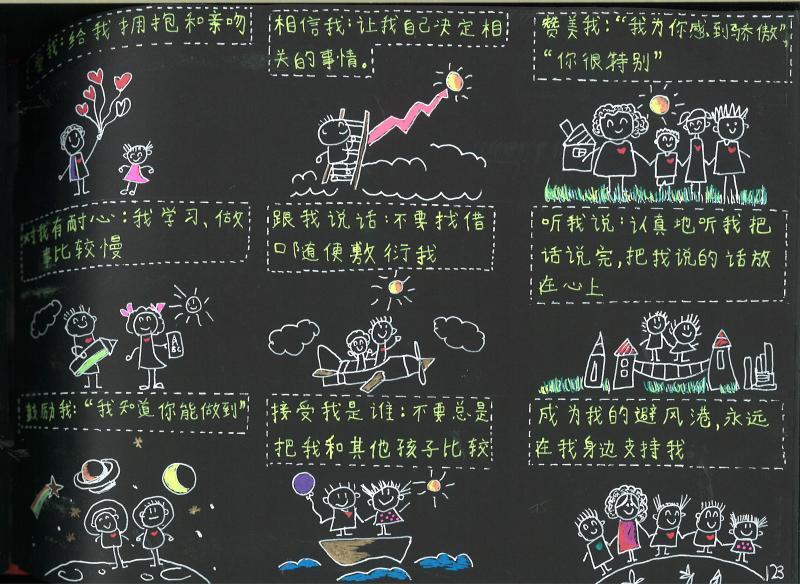 爱我:给我拥抱和亲吻
相信我:让我自己决定相
关的事情。
赞美我:“我为你感到骄傲”
“你很特别”
对我有耐心:我学习、做
事比较慢
跟我说话:不要找借
口随便敷衍我
听我说:认真地听我把
话说完,把我说的话放
在心上
A
BC
鼓励我:“我知道你能做到”
接受我是谁:不要总是
把我和其他孩子比较
成为我的避风港,永远
在我身边支持我
123